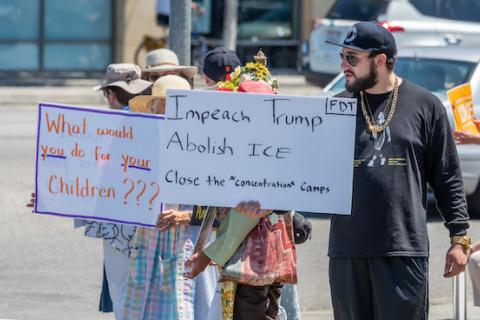 What would
you do for your
Children???
Impeach Trump
FDT
Abolish ICE
Close the *concentration* Camps